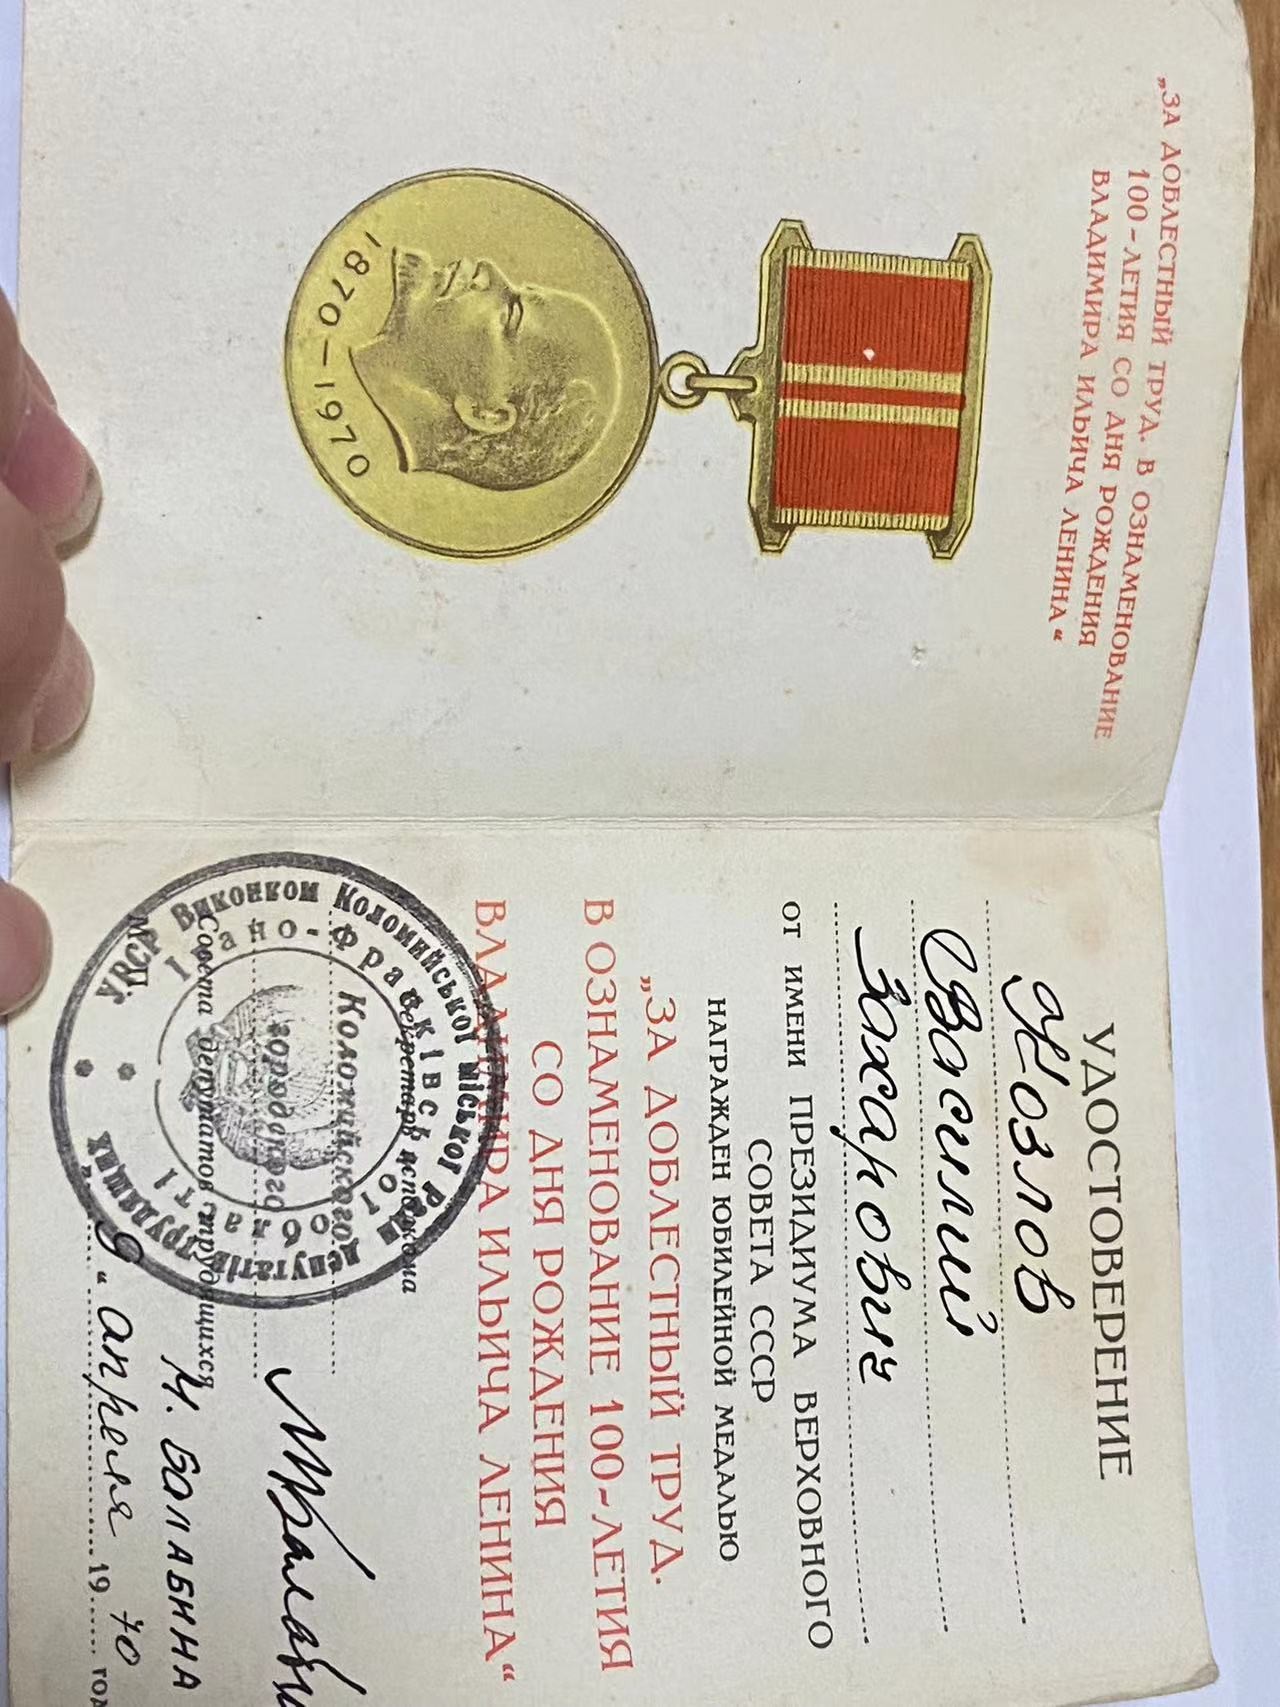 „ЗА ДОБЛЕСТНЫЙ ТРУД. В ОЗНАМЕНОВАНИЕ
100-ЛЕТИЯ СО ДНЯ РОЖДЕНИЯ
ВЛАДИМИРА ИЛЬИЧА ЛЕНИНА“
1870–1970
УДОСТОВЕРЕНИЕ
Козлов
Василий
Захарович
ОТ ИМЕНИ ПРЕЗИДИУМА ВЕРХОВНОГО
СОВЕТА СССР
НАГРАЖДЕН ЮБИЛЕЙНОЙ МЕДАЛЬЮ
„ЗА ДОБЛЕСТНЫЙ ТРУД.
В ОЗНАМЕНОВАНИЕ 100-ЛЕТИЯ
СО ДНЯ РОЖДЕНИЯ
ВЛАДИМИРА ИЛЬИЧА ЛЕНИНА“
Секретарь исполкома
Коломийского
городского
Совета депутатов трудящихся
М. БОЛАБИНА
М.П.
УРСР Виконком Коломийської міської депутатів трудящих
області
“ апреля 19 70 год